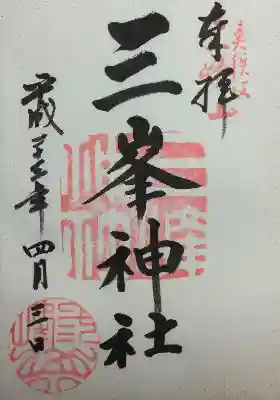 奉拝
奥秩父
三峯神社
平成 年四月三日